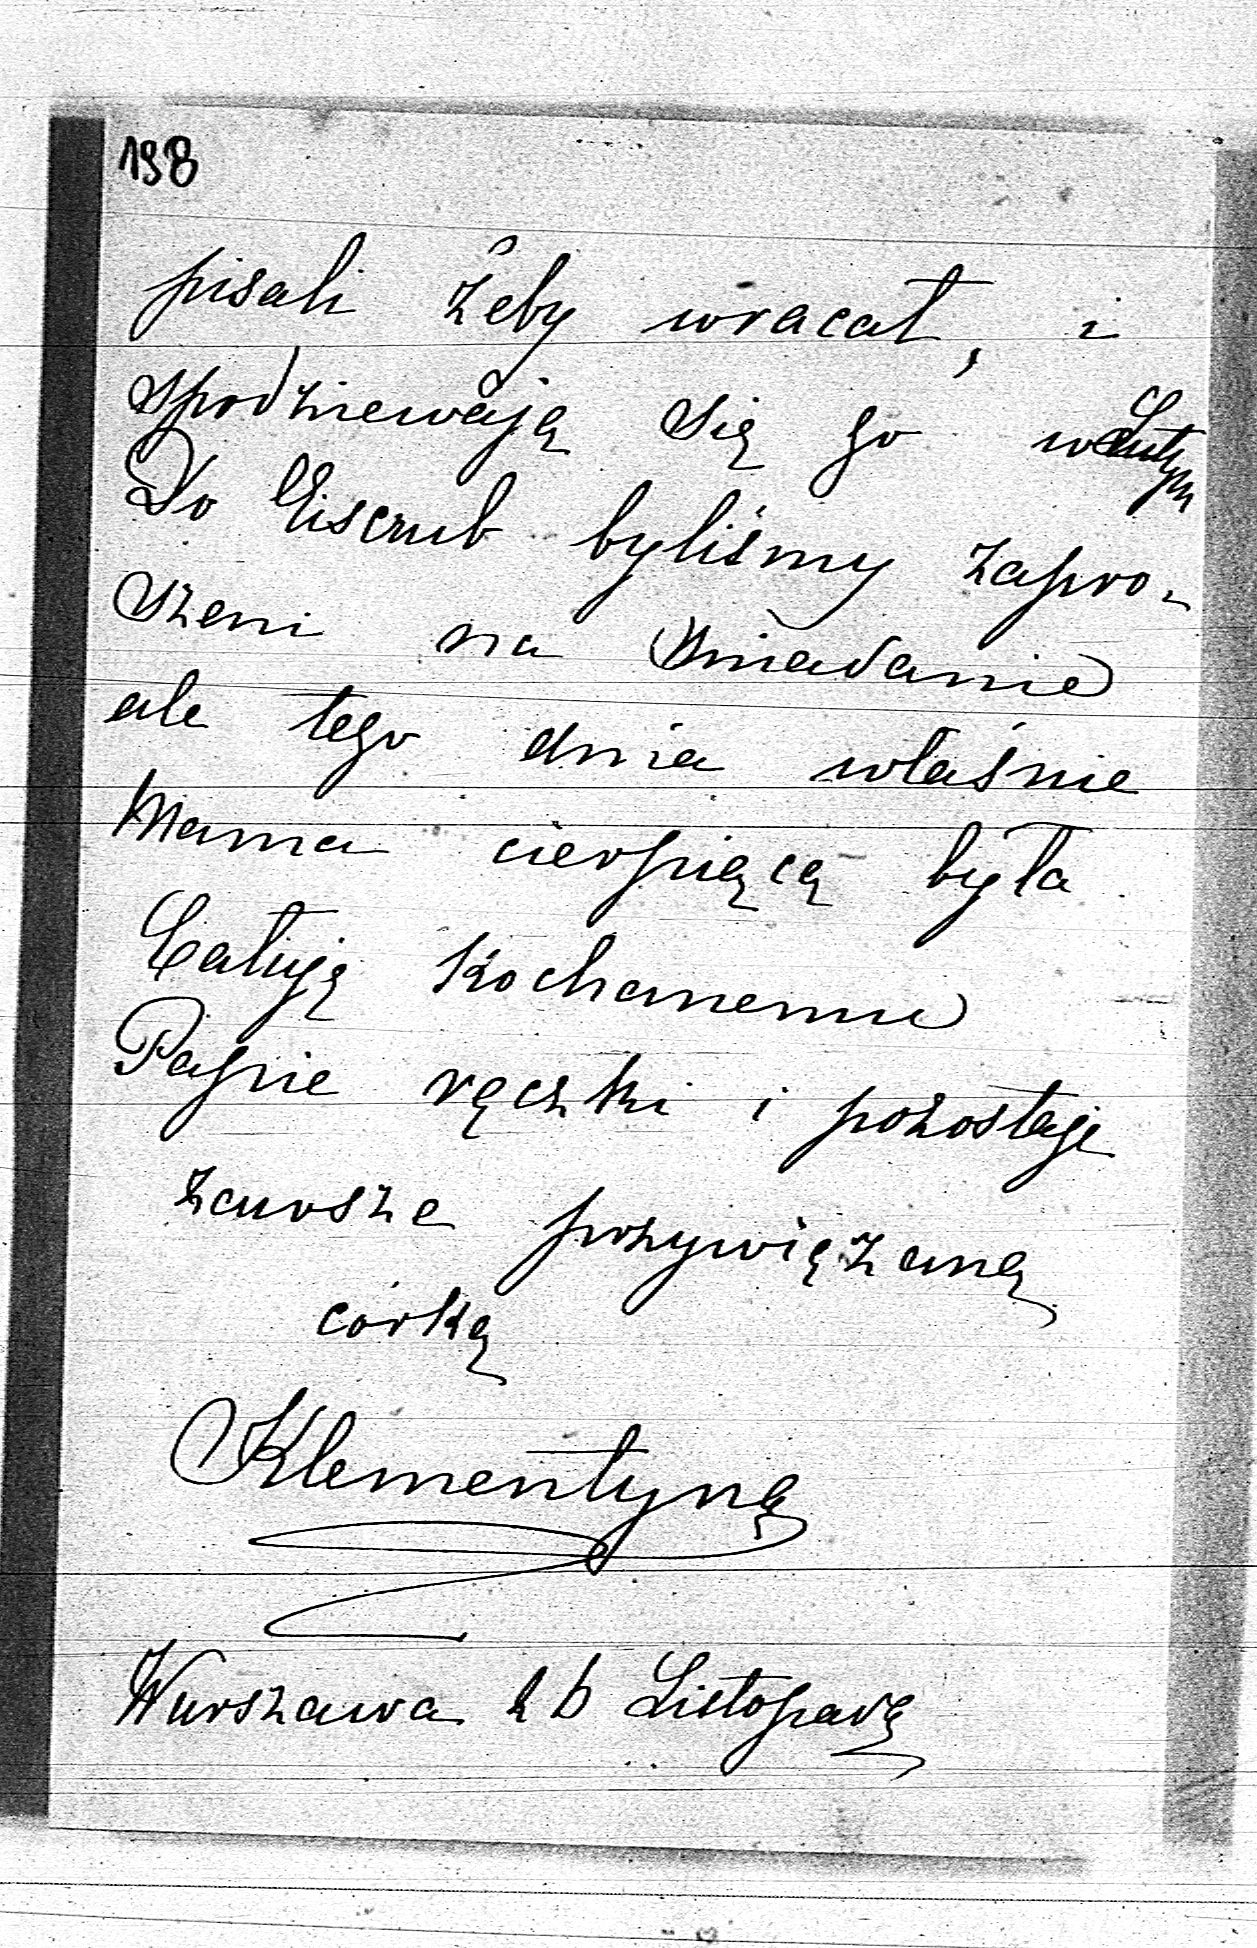 198
pisali żeby wracał, i
spodziewają się go w Lutym
Do Eiscrub byliśmy zapro-
szeni na śniadanie
ale tego dnia właśnie
Mama cierpiącą była
Całuję Kochanemu
Papie rączki i pozostaję
zawsze przywiązaną
córką
Klementyną
Warszawa 26 Listopada